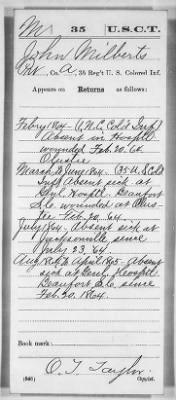 M 35 U.S.C.T.
John Milberts
Pvt, Co. A, 35 Reg't U. S. Colored Inf.
Appears on Returns as follows:
Febry 1864 (1 N.C. Cold Inf)
Absent in Hospl
wounded Feb. 20. 64
Olustee
March to June 1864. (35 U.S. Cold
Inf) Absent sick at
Genl. Hospl. Beaufort
S.C. wounded at Olus-
tee Feb. 20, 64.
July 1864. Absent sick at
Jacksonville since
July 23, 64
Aug 1864 to April 1865- Absent
sick at Genl. Hospl.
Beaufort S.C. since
Feb. 20. 1864.
Book mark:
O. T. Taylor
(546) Copyist.